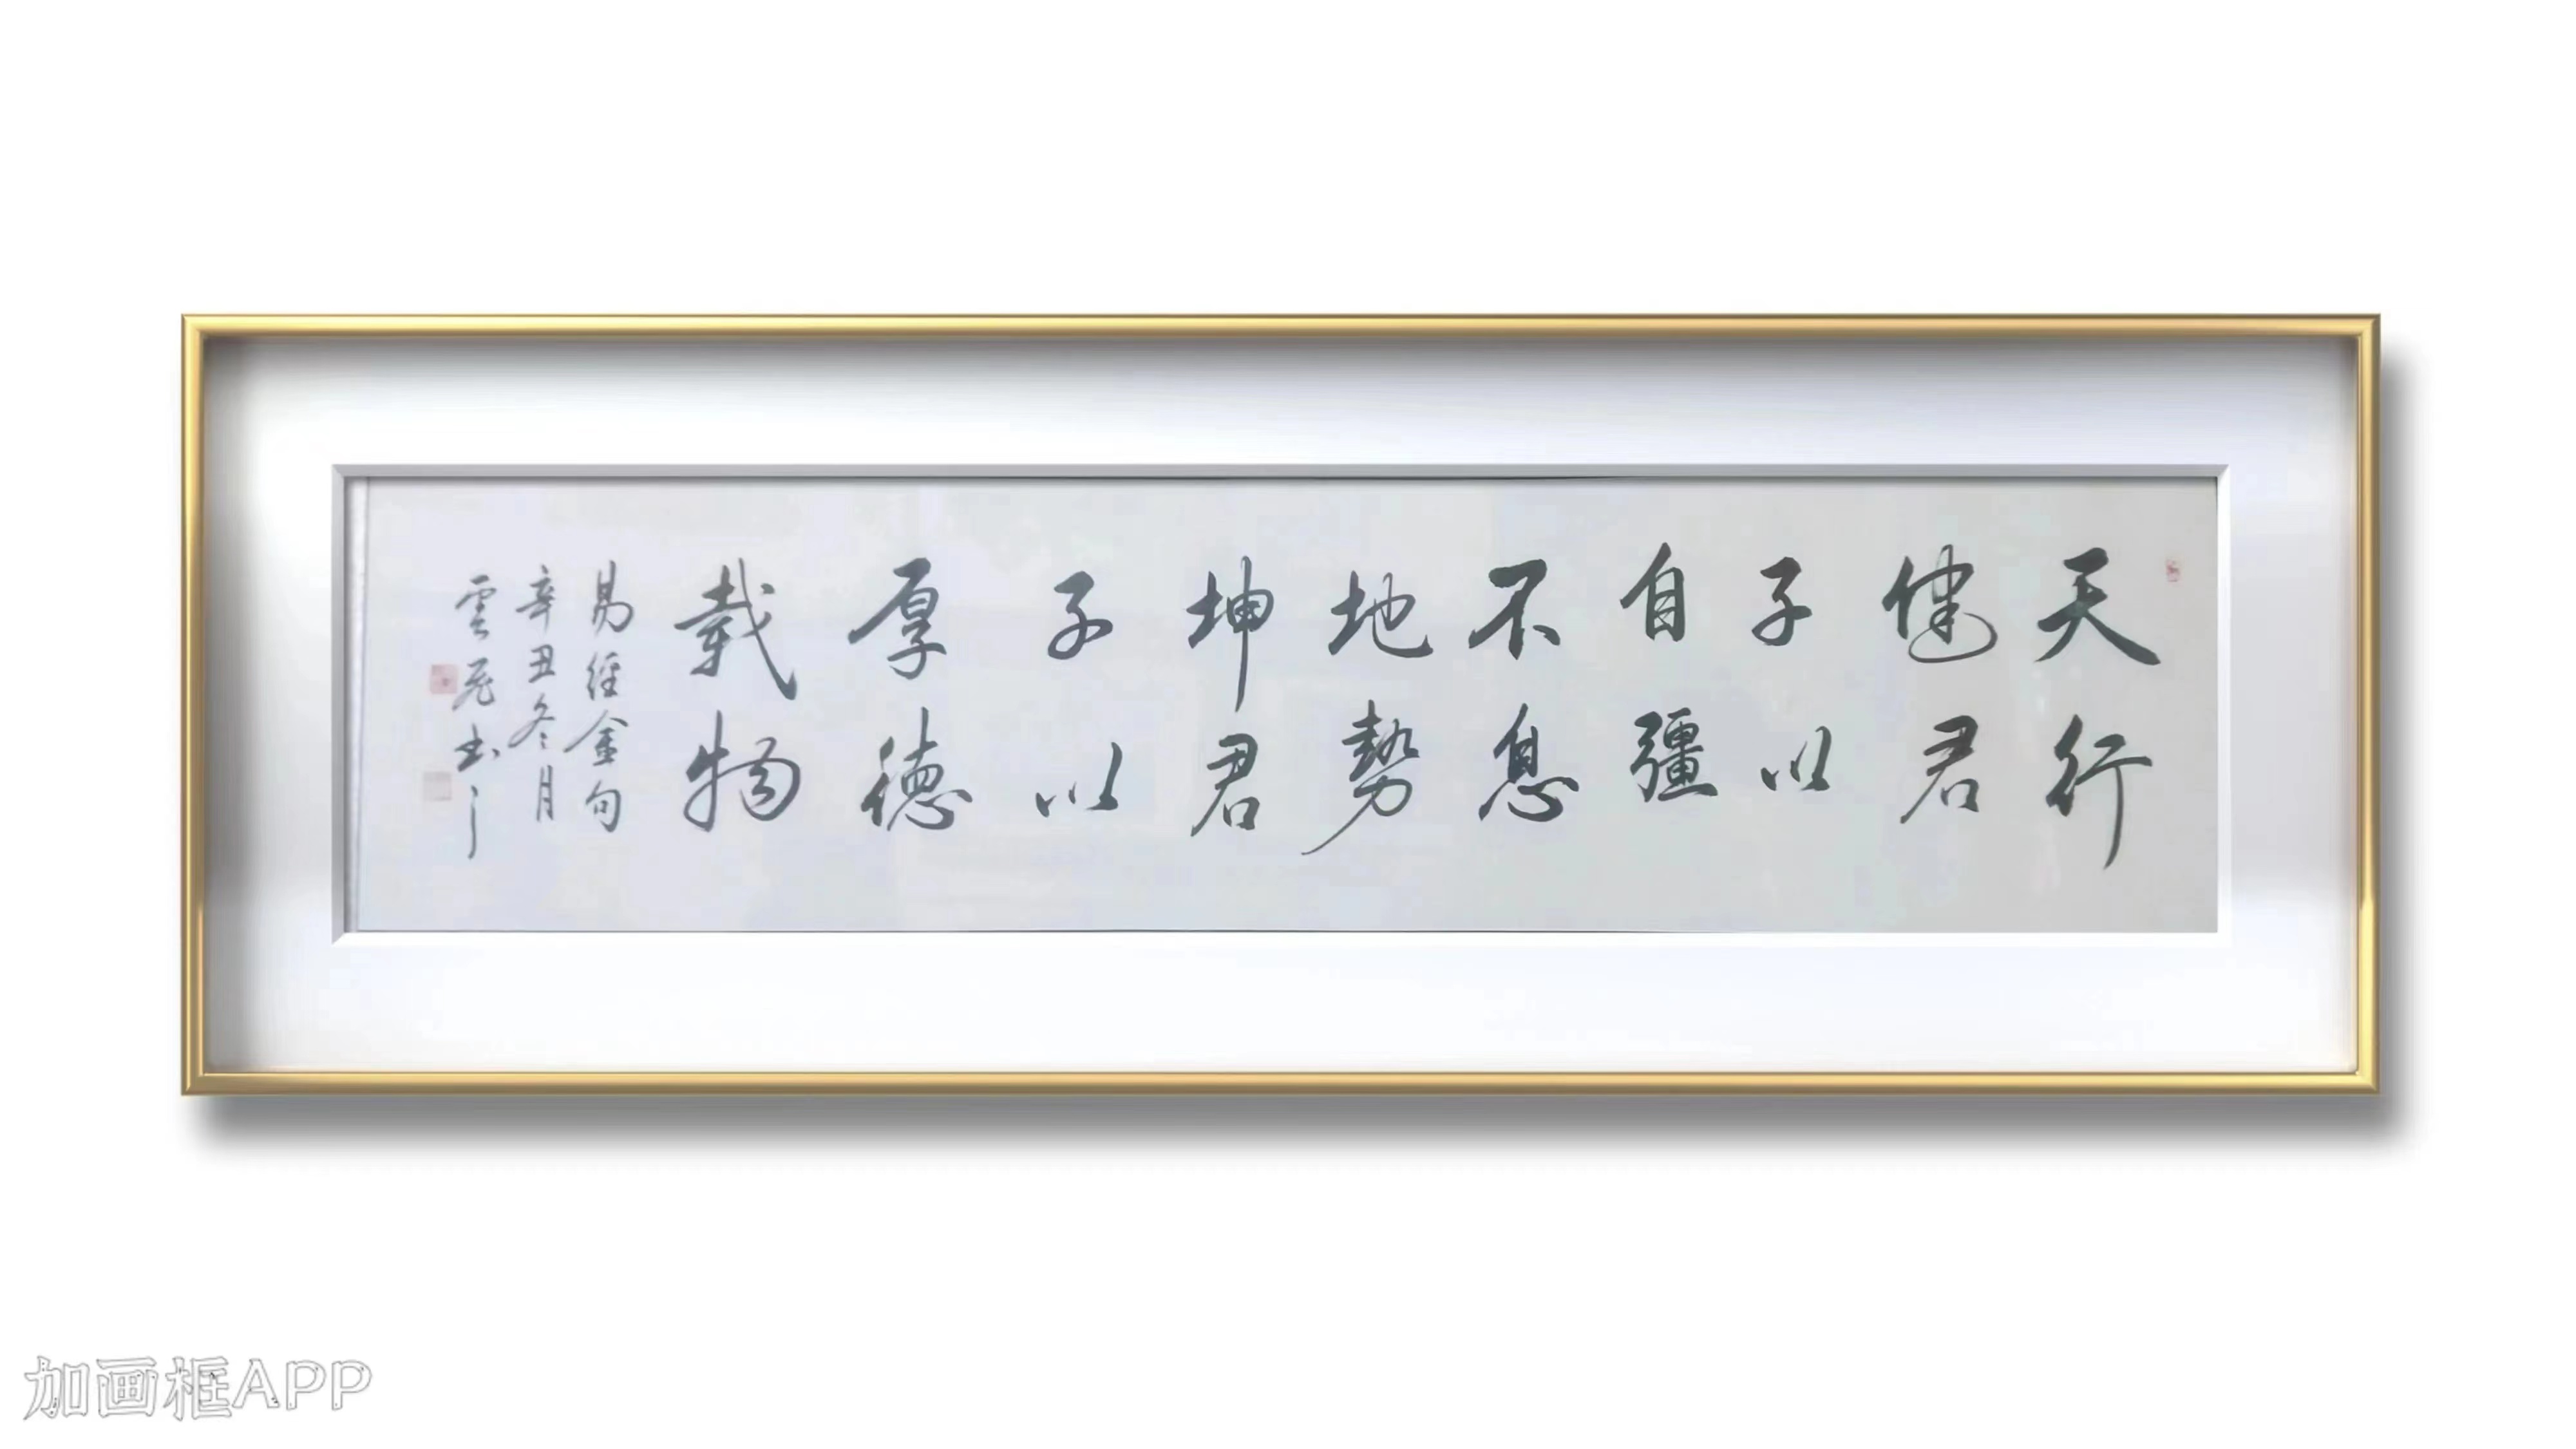 天行
健君
子以
自彊
不息
地勢
坤君
子以
厚德
载物
易经金句
辛丑冬月
雲飞书
加画框APP